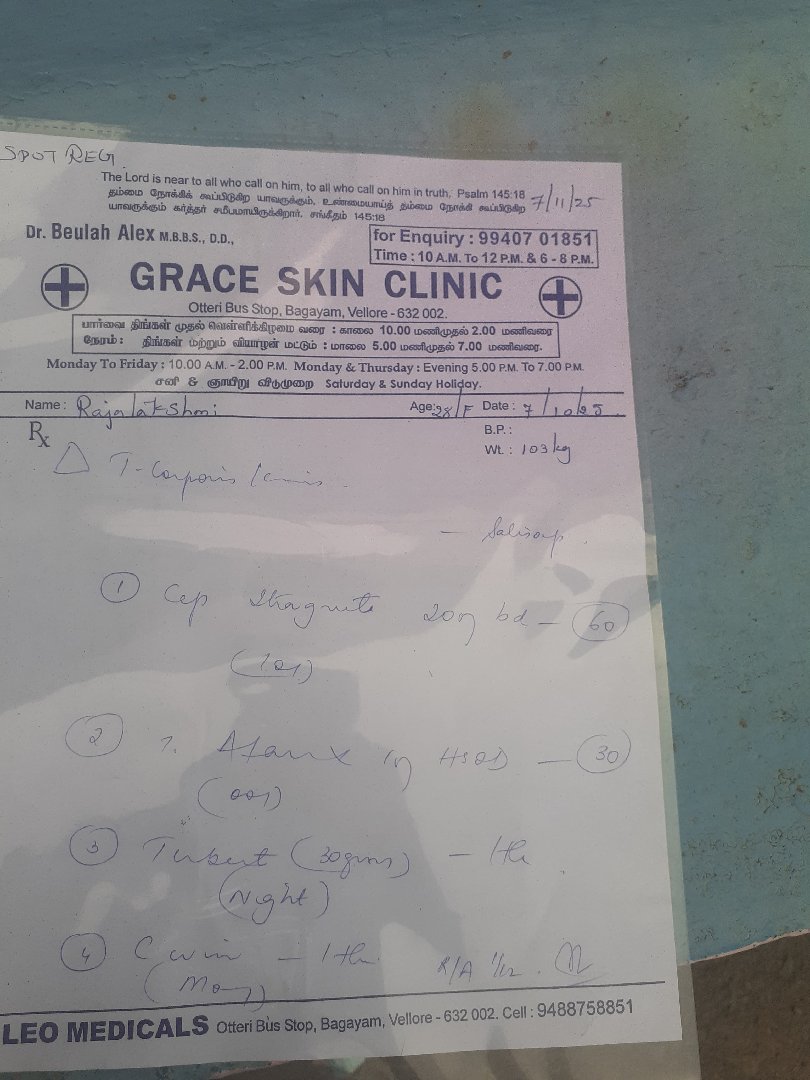 SPOT REG
The Lord is near to all who call on him, to all who call on him in truth, Psalm 145:18
தம்மை நோக்கிக் கூப்பிடுகிற யாவருக்கும், உண்மையாய்த் தம்மை நோக்கி கூப்பிடுகிற 7/11/25
யாவருக்கும் கர்த்தர் சமீபமாயிருக்கிறார். சங்கீதம் 145:18
Dr. Beulah Alex M.B.B.S., D.D.,
for Enquiry : 99407 01851
Time : 10 A.M. To 12 P.M. & 6 - 8 P.M.
GRACE SKIN CLINIC
Otteri Bus Stop, Bagayam, Vellore - 632 002.
பார்வை திங்கள் முதல் வெள்ளிக்கிழமை வரை : காலை 10.00 மணிமுதல் 2.00 மணிவரை
நேரம் : திங்கள் மற்றும் வியாழன் மட்டும் : மாலை 5.00 மணிமுதல் 7.00 மணிவரை.
Monday To Friday : 10.00 A.M. - 2.00 P.M. Monday & Thursday : Evening 5.00 P.M. To 7.00 P.M.
சனி & ஞாயிறு விடுமுறை Saturday & Sunday Holiday.
Name : Rajalakshmi Age: 28/F Date : 7/10/25
Rx B.P. :
Wt. : 103 kg
△ T-Corporis
1 Cap 20 bd - 60
(101)
2 - 30
(001)
3 (30gms) - 1
(Night)
4 - 1
LEO MEDICALS Otteri Bus Stop, Bagayam, Vellore - 632 002. Cell : 9488758851